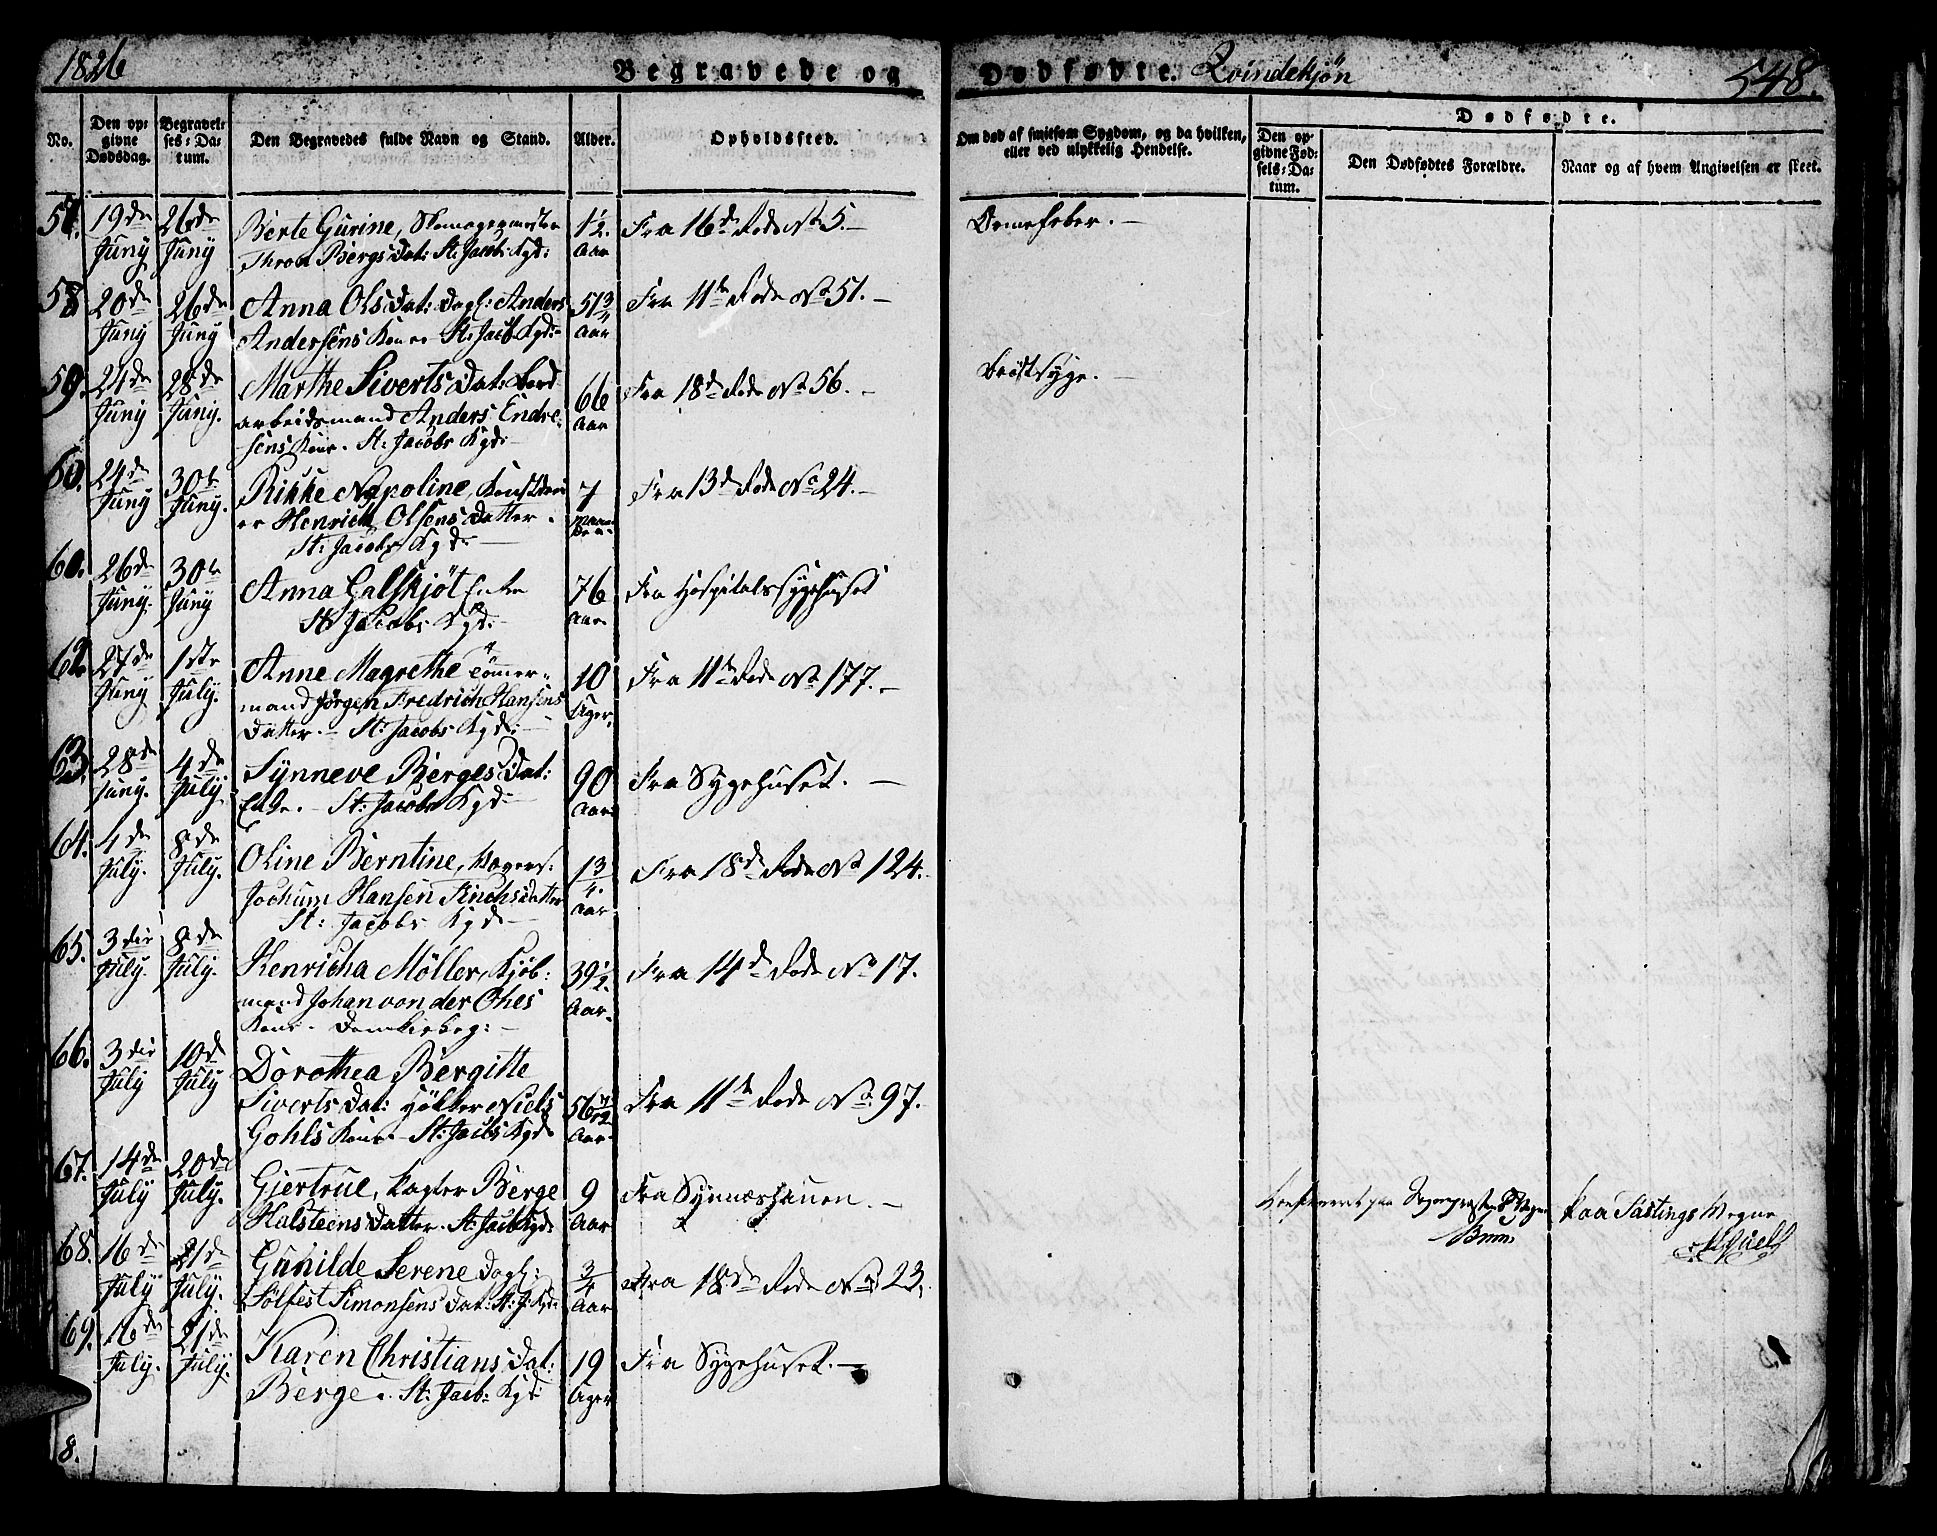 1826
Begravede og Dødfødte. Qvindekjøn
548.
No.
Den opgivne Dødsdag.
Begravelses-Datum.
Den Begravedes fulde Navn og Stand.
Alder.
Opholdssted.
Om død af smitsom Sygdom, og da hvilken, eller ved ulykkelig Hendelse.
Dødfødte.
Den opgivne Fødsels-Datum.
Den Dødfødtes Forældre.
Naar og af hvem Angivelsen er skeet.
57. 19de Juny 26de Juny Berte Gurine, Skomagermester 1½ Aar Fra 16de Rode No 5. Ormefeber.
Thron Bergs Dat: St. Jacobs Kgd:
58. 20de Juny 26de Juny Anna Olsdat: Dagl: Anders 51¾ Aar Fra 11te Rode No 51.
Andersens Kone St: Jacob Kgd:
59. 24de Juny 28de Juny. Marthe Siverts Dat: Bord 66 Aar Fra 18de Rode No 56. Brÿstsyge.
arbeidsmand Anders Endre-
sens Kone. St: Jacobs Kgd:
60. 24de Juny 30te Juny. Rikke Napoline, 7 Fra 13de Rode No 24.
er Henrich Olsens Datter.
St: Jacobs Kgd:
60. 26de Juny. 30te Juny Anna Galskjøt Enke 76 Aar Fra Hospitalssygehuset
St. Jacobs Kgd:
62. 27de Juny 1ste July. Anne Magrethe Tömer- 10 Uger. Fra 11te Rode No 177.
mand Jørgen Fredrich Hansens
Datter. St: Jacobs Kgd:
63. 28de Juny. 4de July. Synneve Berges Dat: 90 Aar Fra Sygehuset.
Enke. St: Jacobs Kgd:
64. 4de July. 8de July. Oline Berntine, 1¾ Aar Fra 18de Rode No 124.
Jochum Hansen Finchs Datter
St: Jacobs Kgd:
65. 3die July. 8de July. Henricha Möller, Kjöb: 39½ Aar. Fra 14de Rode No 17.
mand Johan von der Ohes
Kone. Domkirkeg:
66. 3die July 10de July Dorothea Bergitte
Siverts Dat: Hölker Niels 56 7/12 Aar. Fra 11te Rode No 97.
Gohls Kone. St: Jacobs Kgd:
67. 14de July 20de July. Gjertrue, Berge 9 Aar Fra
Halsteens Datter. St: Jacob Kgd:
paa Sættings Vegne
68. 16de July 21de July. Gunilde Serene Dagl: ¾ Aar Fra 18de Rode No 23.
Sølfest Simonsens Dat: St: J: Kgd:
69. 16de July. 21de July. Karen Christians Dat: 19 Uger Fra Sygehuset.
Berge. St: Jacob: Kgd:
8.